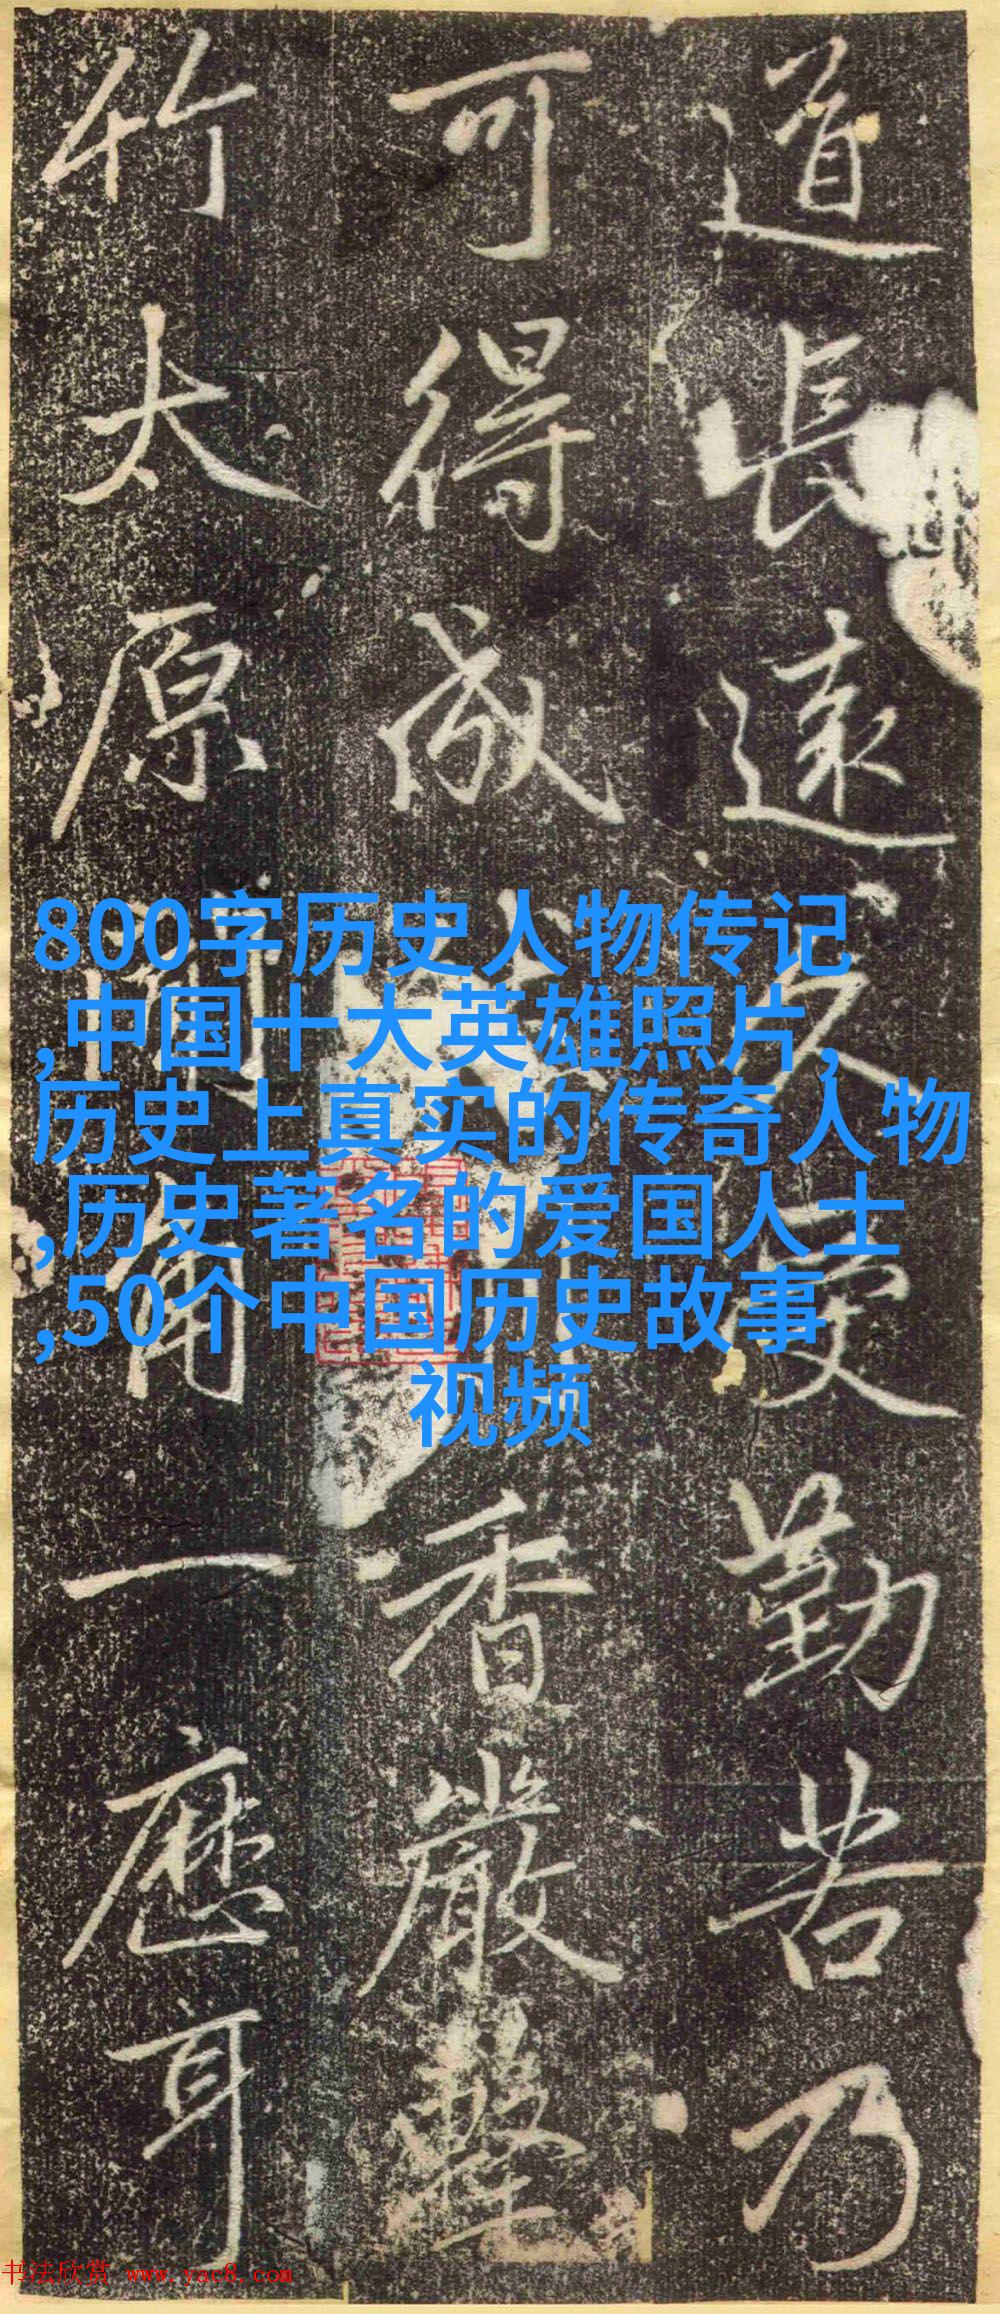 道長遠久受勤苦乃
可得成香嚴擊
竹太原聞角一應耳
800字历史人物传记
,中国十大英雄照片,
历史上真实的传奇人物
,历史著名的爱国人士
,50个中国历史故事
视频
书法欣赏 www.yac8.com